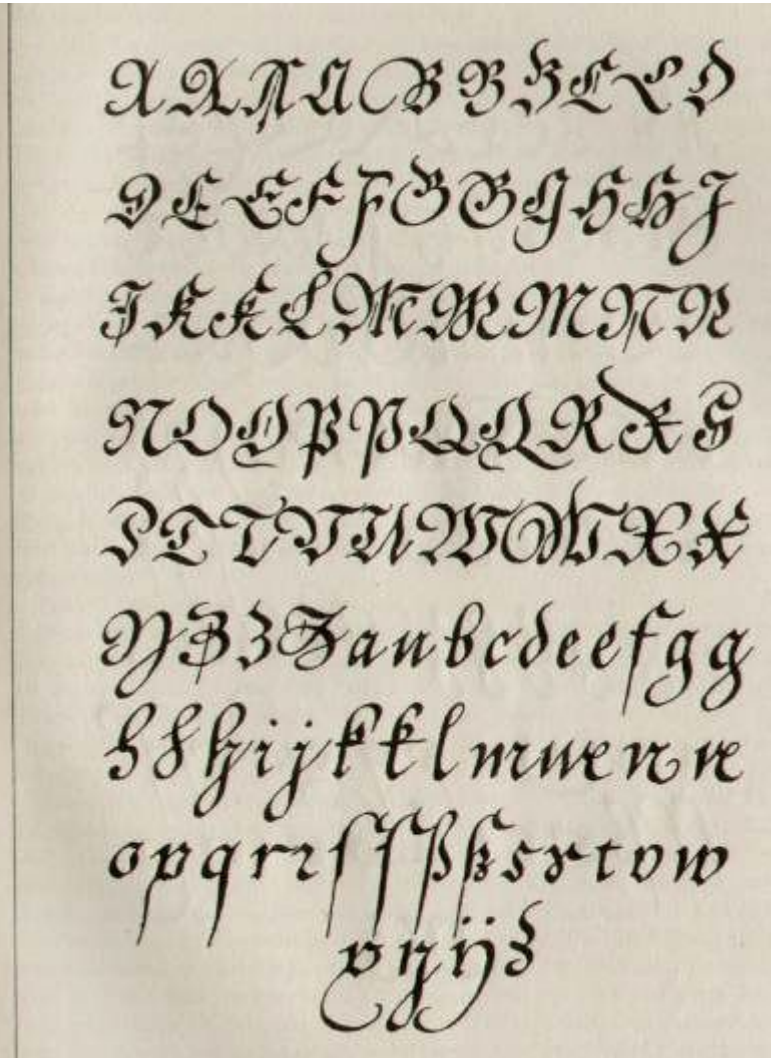 A A A A B B B C C D
D E E F F G G G H H J
J K K L M M M N N
N O O P P Q Q R R S
S T T V U W W X X
Y Z Z Z a a b c d e e f g g
h h h i j k k l m m n n
o p q r r ſ ſ ß ß s s t v w
x y ij z